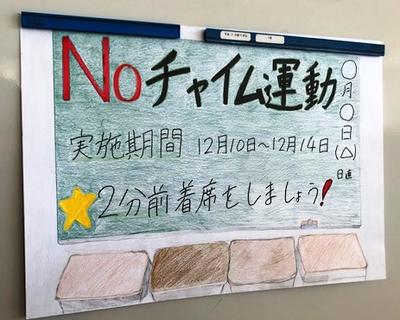 Noチャイム運動
実施期間 12月10日~12月14日
2分前着席をしましょう!
○月○日(△)
日直